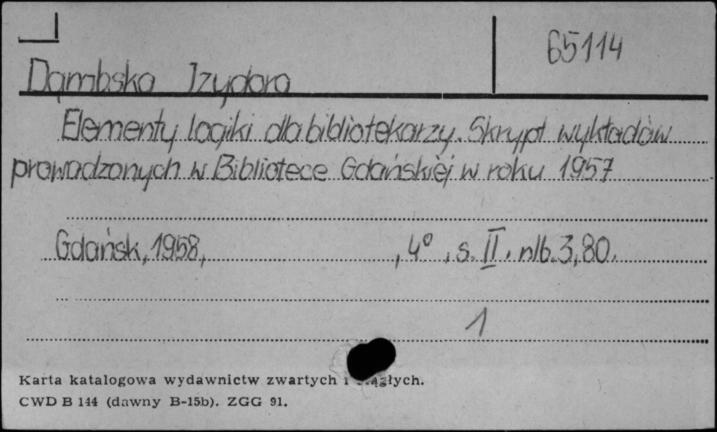 65114
Dąmbska Izydora
Elementy logiki dla bibliotekarzy. Skrypt wykładów
prowadzonych w Bibliotece Gdańskiej w roku 1957
Gdańsk, 1958, , 4° , s. II. nlb. 3, 80.
1
Karta katalogowa wydawnictw zwartych i
CWD B 144 (dawny B-15b). ZGG 91.